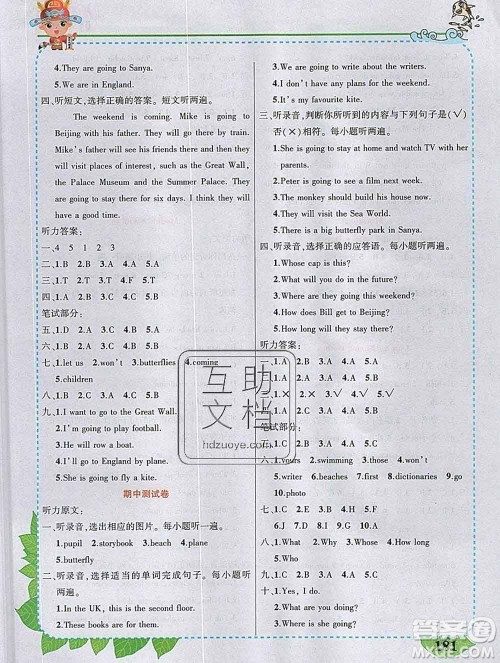 4.They are going to Sanya.
5.We are in England.
四、听短文,选择正确的答案。短文听两遍。
The weekend is coming. Mike is going to
Beijing with his father. They will go there by train.
Mike's father will see his friends there and then they
will visit places of interest, such as the Great Wall,
the Palace Museum and the Summer Palace. They
are going to stay there for six days. I think they
will have a wonderful time there.
听力答案:
一、4 5 1 2 3
二、1.B 2.C 3.A
四、1.A 2.B 3.C 4.C 5.B
笔试部分:
五、1.D 2.A 3.C 4.A 5.B
六、1.B 2.B 3.B 4.B
七、1.let us 2.won't 3.butterflies 4.coming
5.children
八、1.B 2.C 3.B 4.A 5.B
九、1.I want to go to the Great Wall.
2.I'm going to play football.
3.He will row a boat.
4.I will go to England by plane.
5.She is going to fly a kite.
期中测试卷
听力原文:
一、听录音,选出相应的图片。每小题听一遍。
1.pupil 2.storybook 3.beach 4.plane
5.butterfly
二、听录音,选择适当的单词完成句子。每小题听两
遍。
1.In the UK, this is the second floor.
2.They are going to have a picnic.
3.We are going to write about the writers.
4.I don't have any plans for the weekend.
5.It's my favourite kite.
三、听录音,判断你所听到的内容与下列句子是(√)
否(×)相符。每小题听两遍。
1.She is going to stay at home and watch TV with her
parents.
2.Peter is going to see a film next week.
3.The monkey should build his house now.
4.They will visit the Sea World.
5.There is a big butterfly park in Sanya.
四、听录音,选择正确的应答语。每小题听两遍。
1.Whose cap is this?
2.What will you do in the future?
3.Where are you going this weekend?
4.How does Bill get to Beijing?
5.How long will they stay there?
听力答案:
一、1.A 2.B 3.A 4.A 5.B
二、1.A 2.B 3.B 4.A 5.A
三、1.× 2.× 3.√ 4.√ 5.√
四、1.A 2.A 3.A 4.A 5.B
笔试部分:
五、1.C 2.C 3.B 4.A 5.D
六、1.yours 2.swimming 3.those 4.won't
5.was 6.writer 7.beaches 8.first 9.dictionaries
10.photo
七、1.C 2.G 3.E 4.I 5.H
6.J 7.F 8.D 9.B 10.A
八、1.What 2.Where 3.What 4.How 5.How long
九、1.C 2.D 3.A 4.E 5.B
十、1.Yes, I do.
2.What are you going to do?
3.Where is she going?
互助
文档
hdzuoye.com
181
答案圈
MXQE.COM